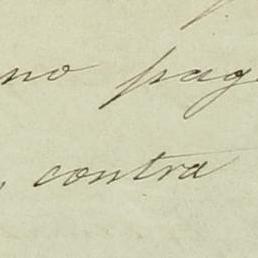 no pag
, contra